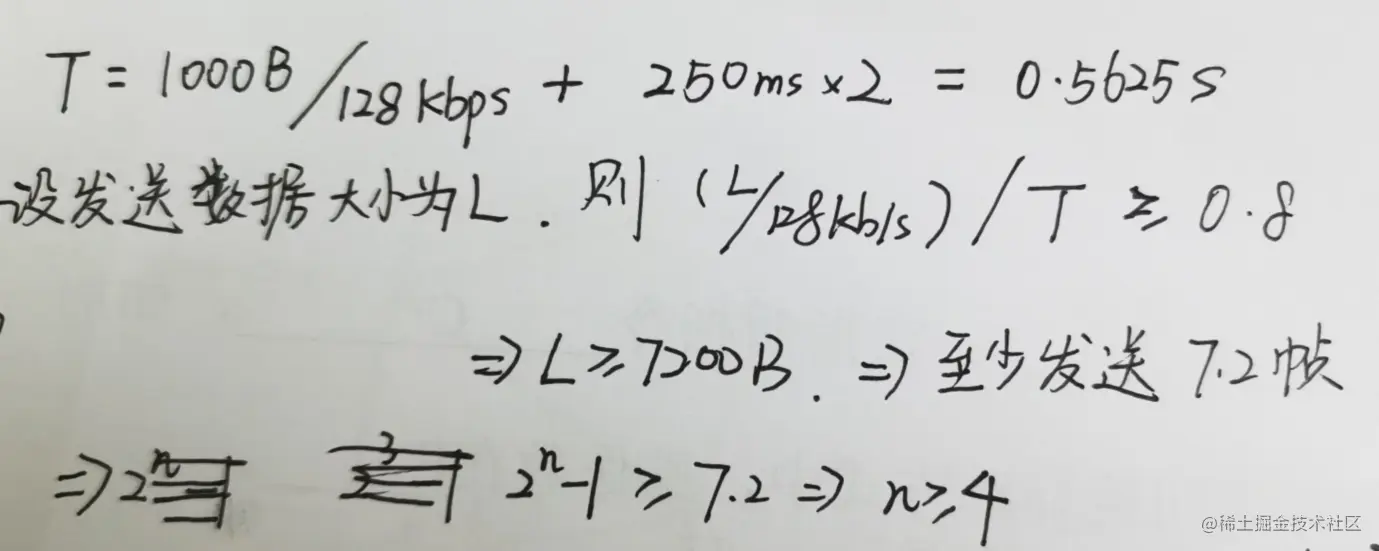 T = 1000B/128kbps + 250ms×2 = 0.5625s
设发送数据大小为L. 则 (L/128kb/s)/T ≥ 0.8
⇒ L≥7200B. ⇒ 至少发送 7.2帧
⇒ 2^n-1 ≥ 7.2 ⇒ n≥4
@稀土掘金技术社区